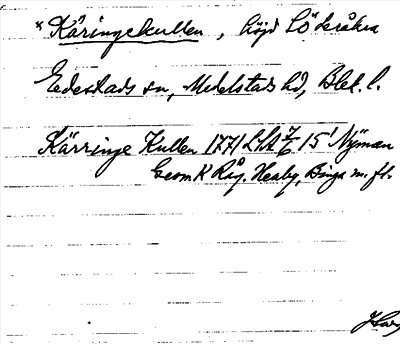 * Käringekullen, höjd Söderåkra
Edestads sn, Medelstads hd, Blek. l.
Kärringe Kullen 1771 LSA 7/6 15' Nyman
Geom K Råg. Heaby, Binga m. fl.